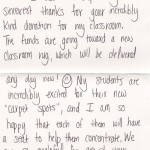 sincerest thanks for your incredibly
kind donation for my classroom.
The funds are going toward a new
classroom rug, which will be delivered
any day now! My students are
incredibly excited for their new
"carpet spots", and I am so
happy that each of them will have
a seat to help them concentrate. We